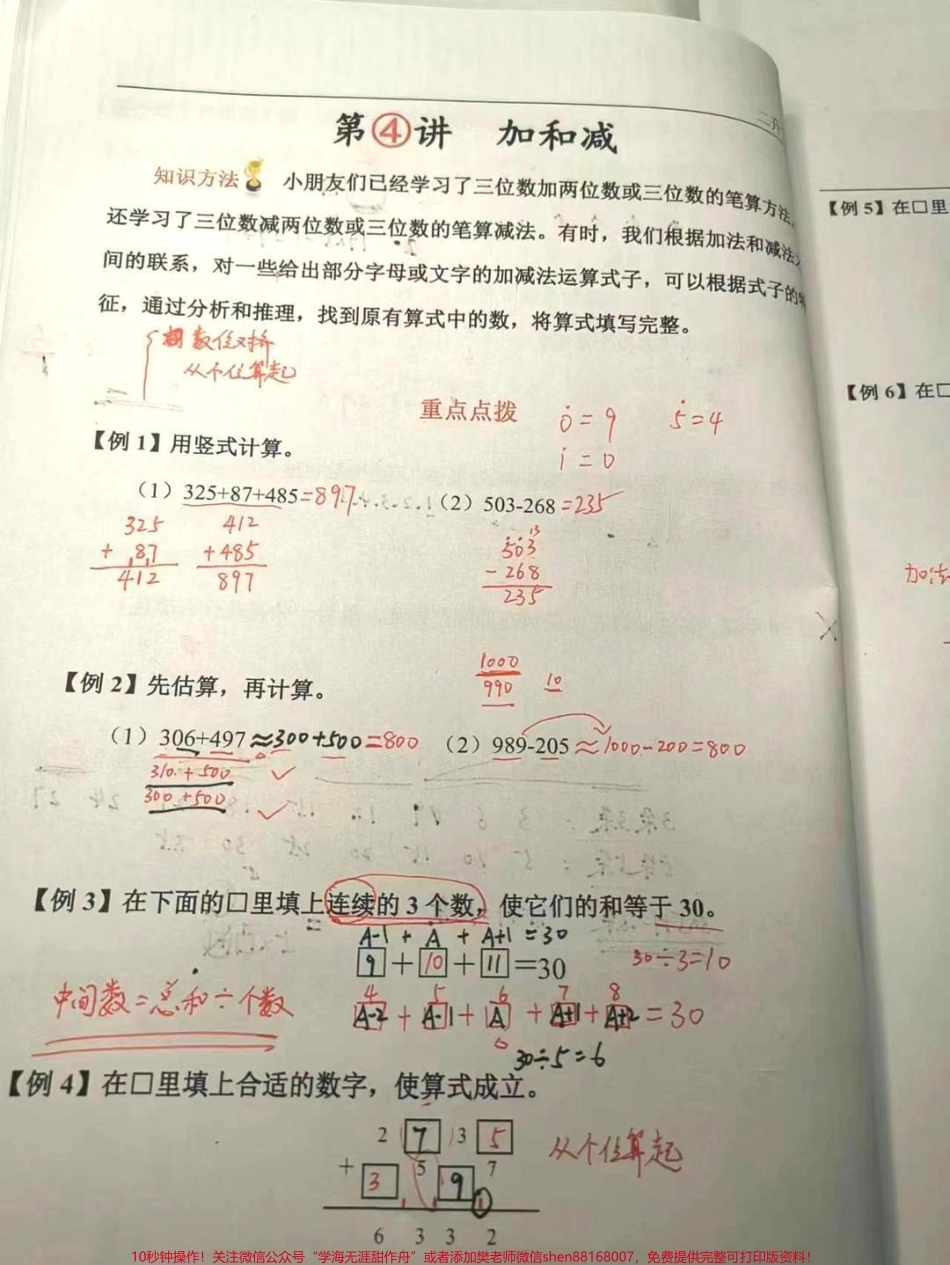 二升
第④讲 加和减
知识方法 小朋友们已经学习了三位数加两位数或三位数的笔算方法,
还学习了三位数减两位数或三位数的笔算减法。有时,我们根据加法和减法之
间的联系,对一些给出部分字母或文字的加减法运算式子,可以根据式子的特
征,通过分析和推理,找到原有算式中的数,将算式填写完整。
相数位对齐
从个位算起
重点点拨
0̇=9 5̇=4
1̇=0
【例1】用竖式计算。
(1)325+87+485=897 (2)503-268=235
325 412 503
+ 87 +485 -268
412 897 235
1000
990 10
【例2】先估算,再计算。
(1)306+497≈300+500=800 (2)989-205≈1000-200=800
310+500
300+500
【例3】在下面的□里填上连续的3个数,使它们的和等于30。
A-1 + A + A+1 =30
9+10+11=30 30÷3=10
中间数=总和÷个数
4 5 6 7 8
A-2 + A-1 + A + A+1 + A+2 = 30
30÷5=6
【例4】在□里填上合适的数字,使算式成立。
2 7 3 5
+ 3 5 9 7
6 3 3 2
从个位算起
【例5】在□里
【例6】在□
加法
10秒钟操作!关注微信公众号“学海无涯甜作舟”或者添加樊老师微信shen88168007,免费提供完整可打印版资料!